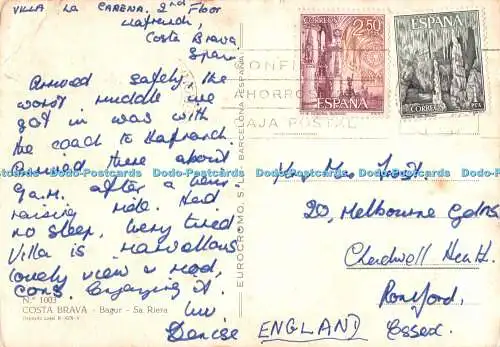 VILLA La CARENA. 2nd Floor
Llafranch,
Costa Brava
Spain
Arrived safely the
worst muddle we
got in was with
the coach to Llafranch.
Arrived there about
9a.m. after a hair
raising ride. Had
no sleep, very tired
Villa is marvellous
lovely view & mod,
cons. Enjoying it.
luv
Denise
N.º 1003
COSTA BRAVA - Bagur - Sa Riera
EUROCROMO, S.
BARCELONA (ESPAÑA)
CORREOS 2,50
ESPAÑA
ESPAÑA
CORREOS PTA
AHORROS
CAJA POSTAL
Mr Mrs
20, Melbourne Gdns,
Chadwell Heath
Romford,
ENGLAND Essex.
Dodo-Postcards Dodo-Postcards Dodo-Postcards Dodo-Postcards Dodo-Postcards Dodo-Postcards